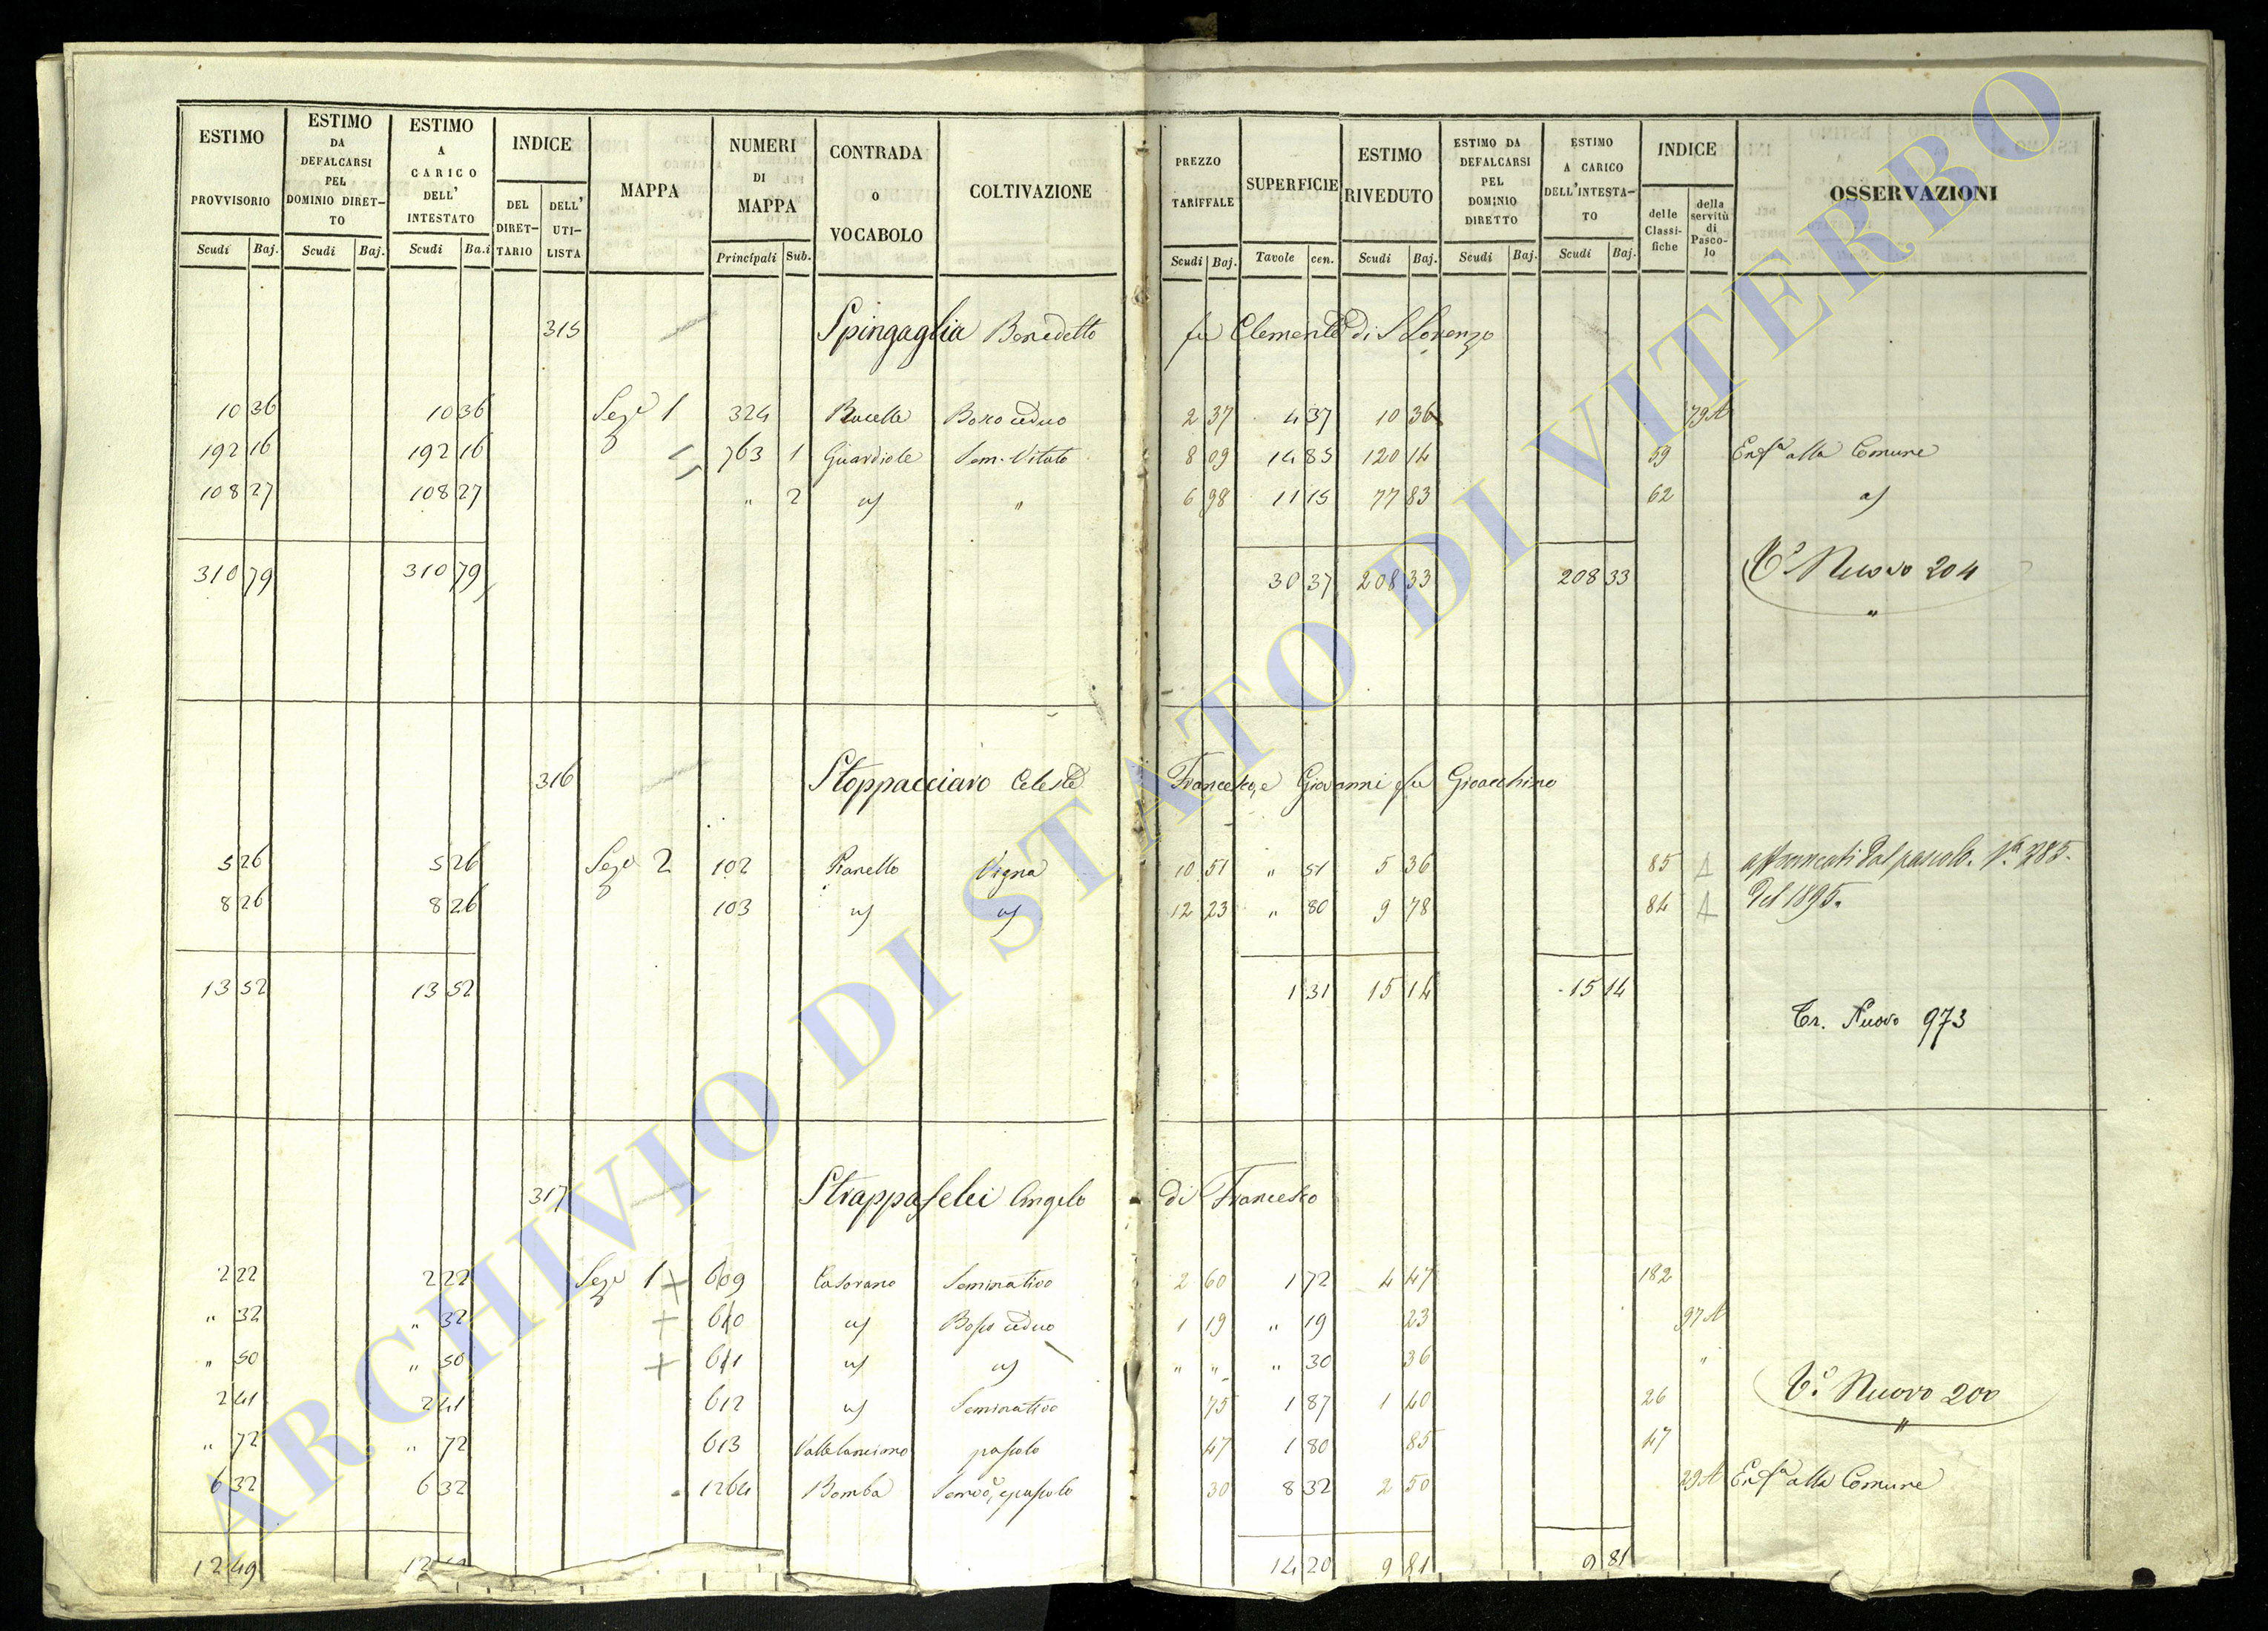 ESTIMO PROVVISORIO Scudi Baj.
ESTIMO DA DEFALCARSI PEL DOMINIO DIRETTO Scudi Baj.
ESTIMO A CARICO DELL' INTESTATO Scudi Ba.i
INDICE DEL DIRETTARIO DELL' UTILISTA
MAPPA
NUMERI DI MAPPA Principali Sub.
CONTRADA o VOCABOLO
COLTIVAZIONE
PREZZO TARIFFALE Scudi Baj.
SUPERFICIE Tavole cen.
ESTIMO RIVEDUTO Scudi Baj.
ESTIMO DA DEFALCARSI PEL DOMINIO DIRETTO Scudi Baj.
ESTIMO A CARICO DELL'INTESTATO Scudi Baj.
INDICE delle Classifiche della servitù di Pascolo
OSSERVAZIONI
315 Spingaglia Benedetto fu Clemente di S Lorenzo
10 36 10 36 Sez.e 1 324 Bucelle Bosco ceduo 2 37 4 37 10 36 79 A
192 16 192 16 763 1 Guardiole Sem. Vitato 8 09 14 85 120 14 59 Enf.a alla Comune
108 27 108 27 " 2 " 6 98 11 15 77 83 62
310 79 310 79 30 37 208 33 208 33 T.o Nuovo 204
316 Stoppacciaro Celeste Francesco, e Giovanni fu Gioacchino
5 26 5 26 Sez.e 2 102 Pianello Vigna 10 51 " 51 5 36 85 A affrancati dal pascolo. 385.
8 26 8 26 103 12 23 " 80 9 78 84 A del 1895.
13 52 13 52 1 31 15 14 15 14
Tr. Nuovo 973
317 Strappafelci Angelo di Francesco
2 22 2 22 Sez.e 1 609 Casorano Seminativo 2 60 1 72 4 47 182
" 32 " 32 610 Bosco ceduo 1 19 " 19 23 97 A
" 50 " 50 611 " " " 30 36 "
2 41 2 41 612 Seminativo 75 1 87 1 40 26 T.o Nuovo 200
" 72 " 72 613 pascolo 47 1 80 85 47
6 32 6 32 1264 Bomba 30 8 32 2 50 29 A Enf.a alla Comune
12 49 12 14 20 9 81 9 81
ARCHIVIO DI STATO DI VITERBO